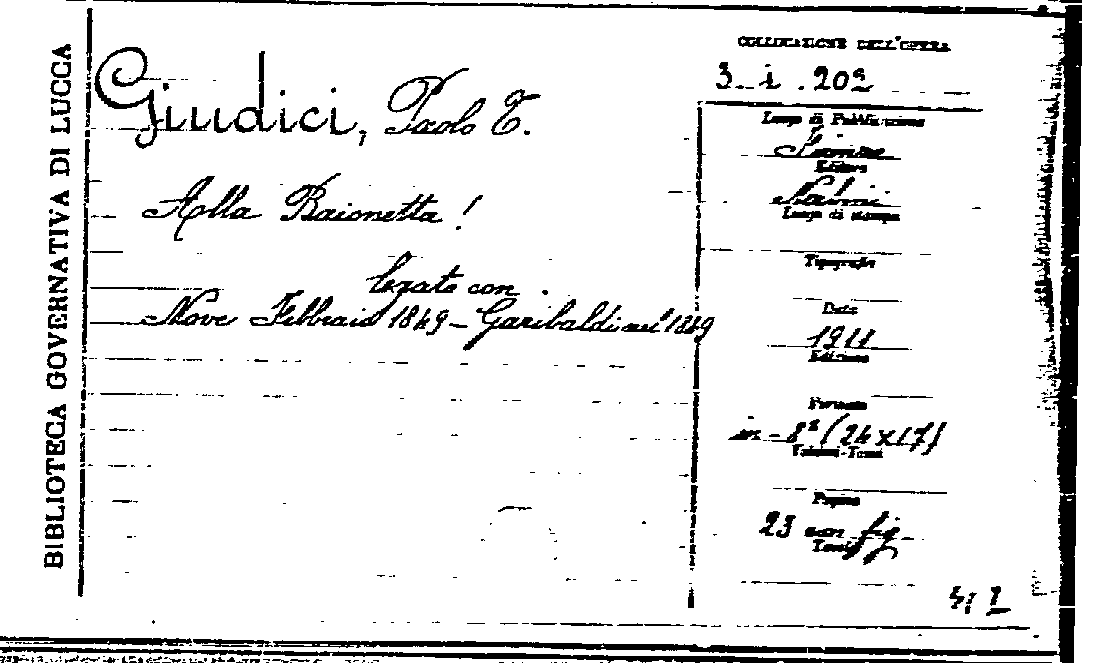 BIBLIOTECA GOVERNATIVA DI LUCCA
Giudici, Paolo E.
Alla Baionetta!
legato con
Nove Febbraio 1849 – Garibaldi nel 1849
COLLOCAZIONE DELL'OPERA
3. i. 202
Luogo di Pubblicazione
Firenze
Editore
Nerbini
Luogo di stampa
Tipografia
Data
1911
Edizione
Formato
in-8° (24x17)
Volumi-Tomi
Pagine
23 con fig.
Tavole